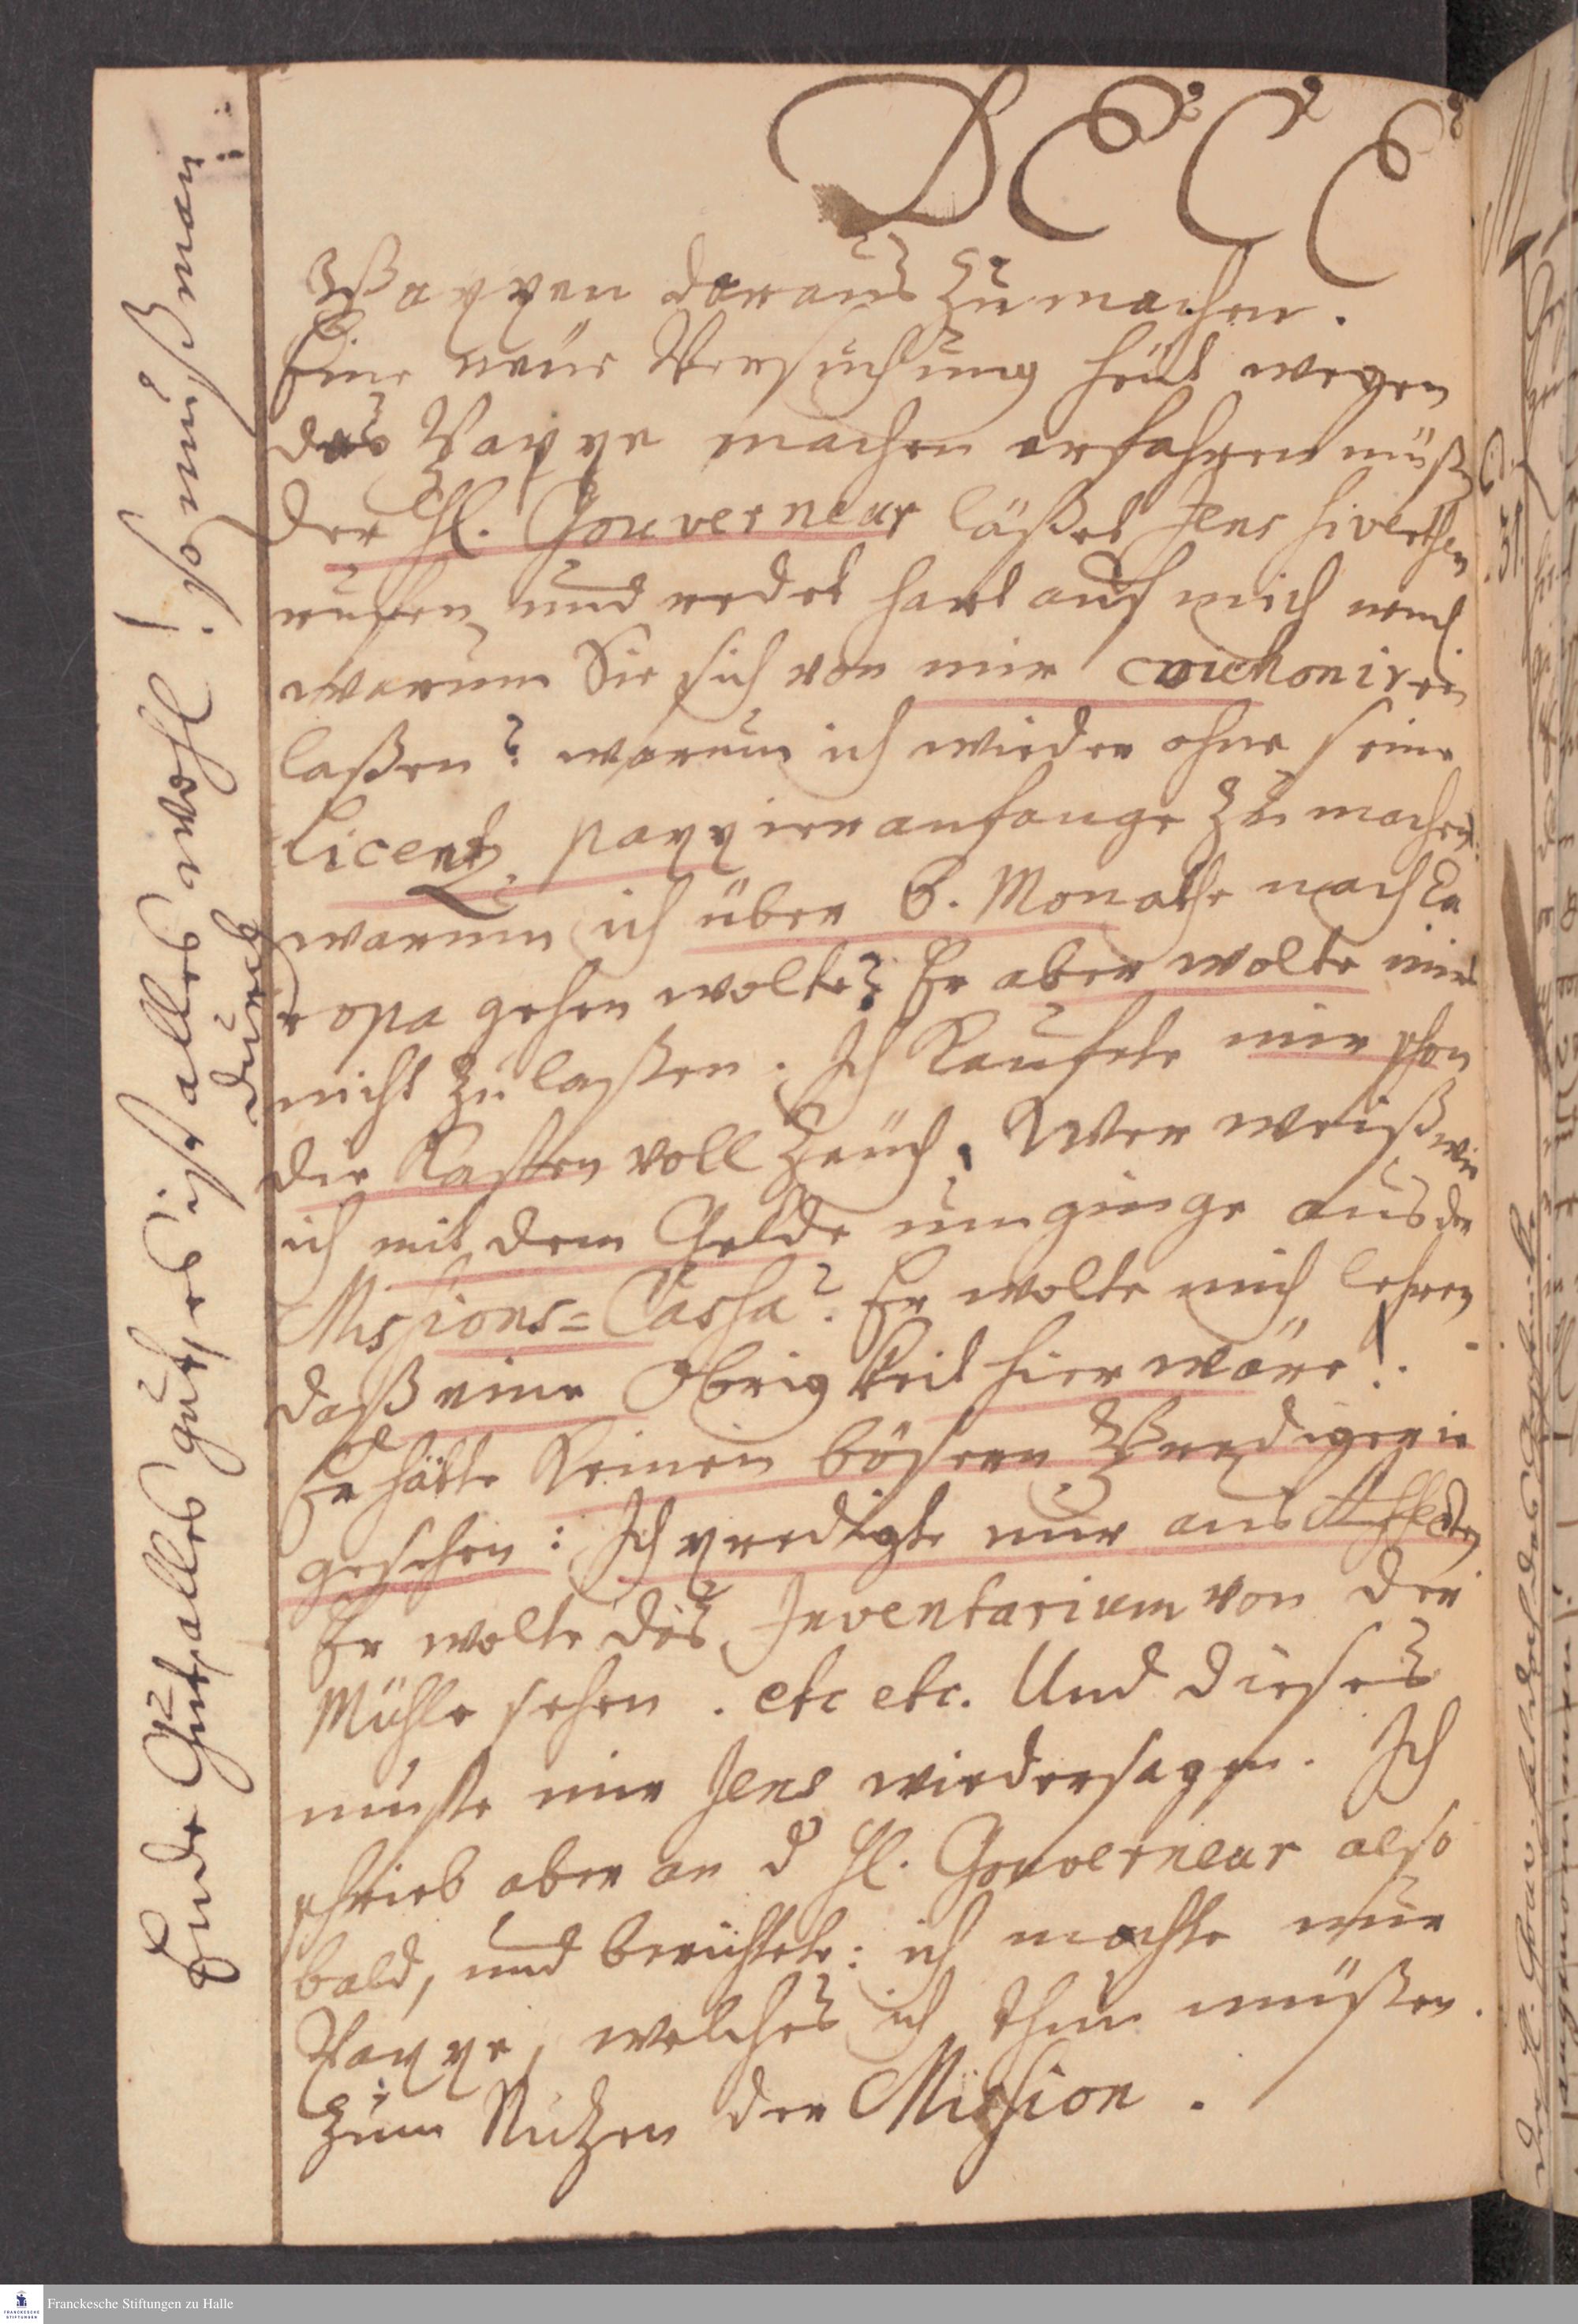 DECE
Pappen daraus zu machen.
Eine neüe Versuchung heüt wegen
das Pappe machen erfahren müß
der H. Gouverneur läßet Jens Siverthsen
rufen, und redet hart auf mich
warum Sie sich von mir
laßen? warum ich wieder ohne seine
Licentz pappier anfange zu machen:
warum ich über 6. Monathe nach Eu
ropa gehen wolte? Er aber wolte mirs
nicht zulaßen. Ich kaufete mir schon
die Kasten voll Zeüch. Wer weiß wie
ich mit dem Gelde umginge aus der
Missions=Cassa? Er wolte mich lehren
daß eine Obrigkeit hier wäre!.
Er hätte keinen bösern Prediger ie
gesehen: Ich predigte nur aus Affecten
Er wolte das Inventarium von der
Mühle sehen. etc etc. Und dieses
muste mir Jens wiedersagen. Ich
schrieb aber an d H. Gouverneur also
bald, und berichtete: ich machte nur
Pappe, welches ich thun müßen
zum Nutzen der Mission.
Ende Gut, alles gut, es ist alles wohl! so muß man
durch